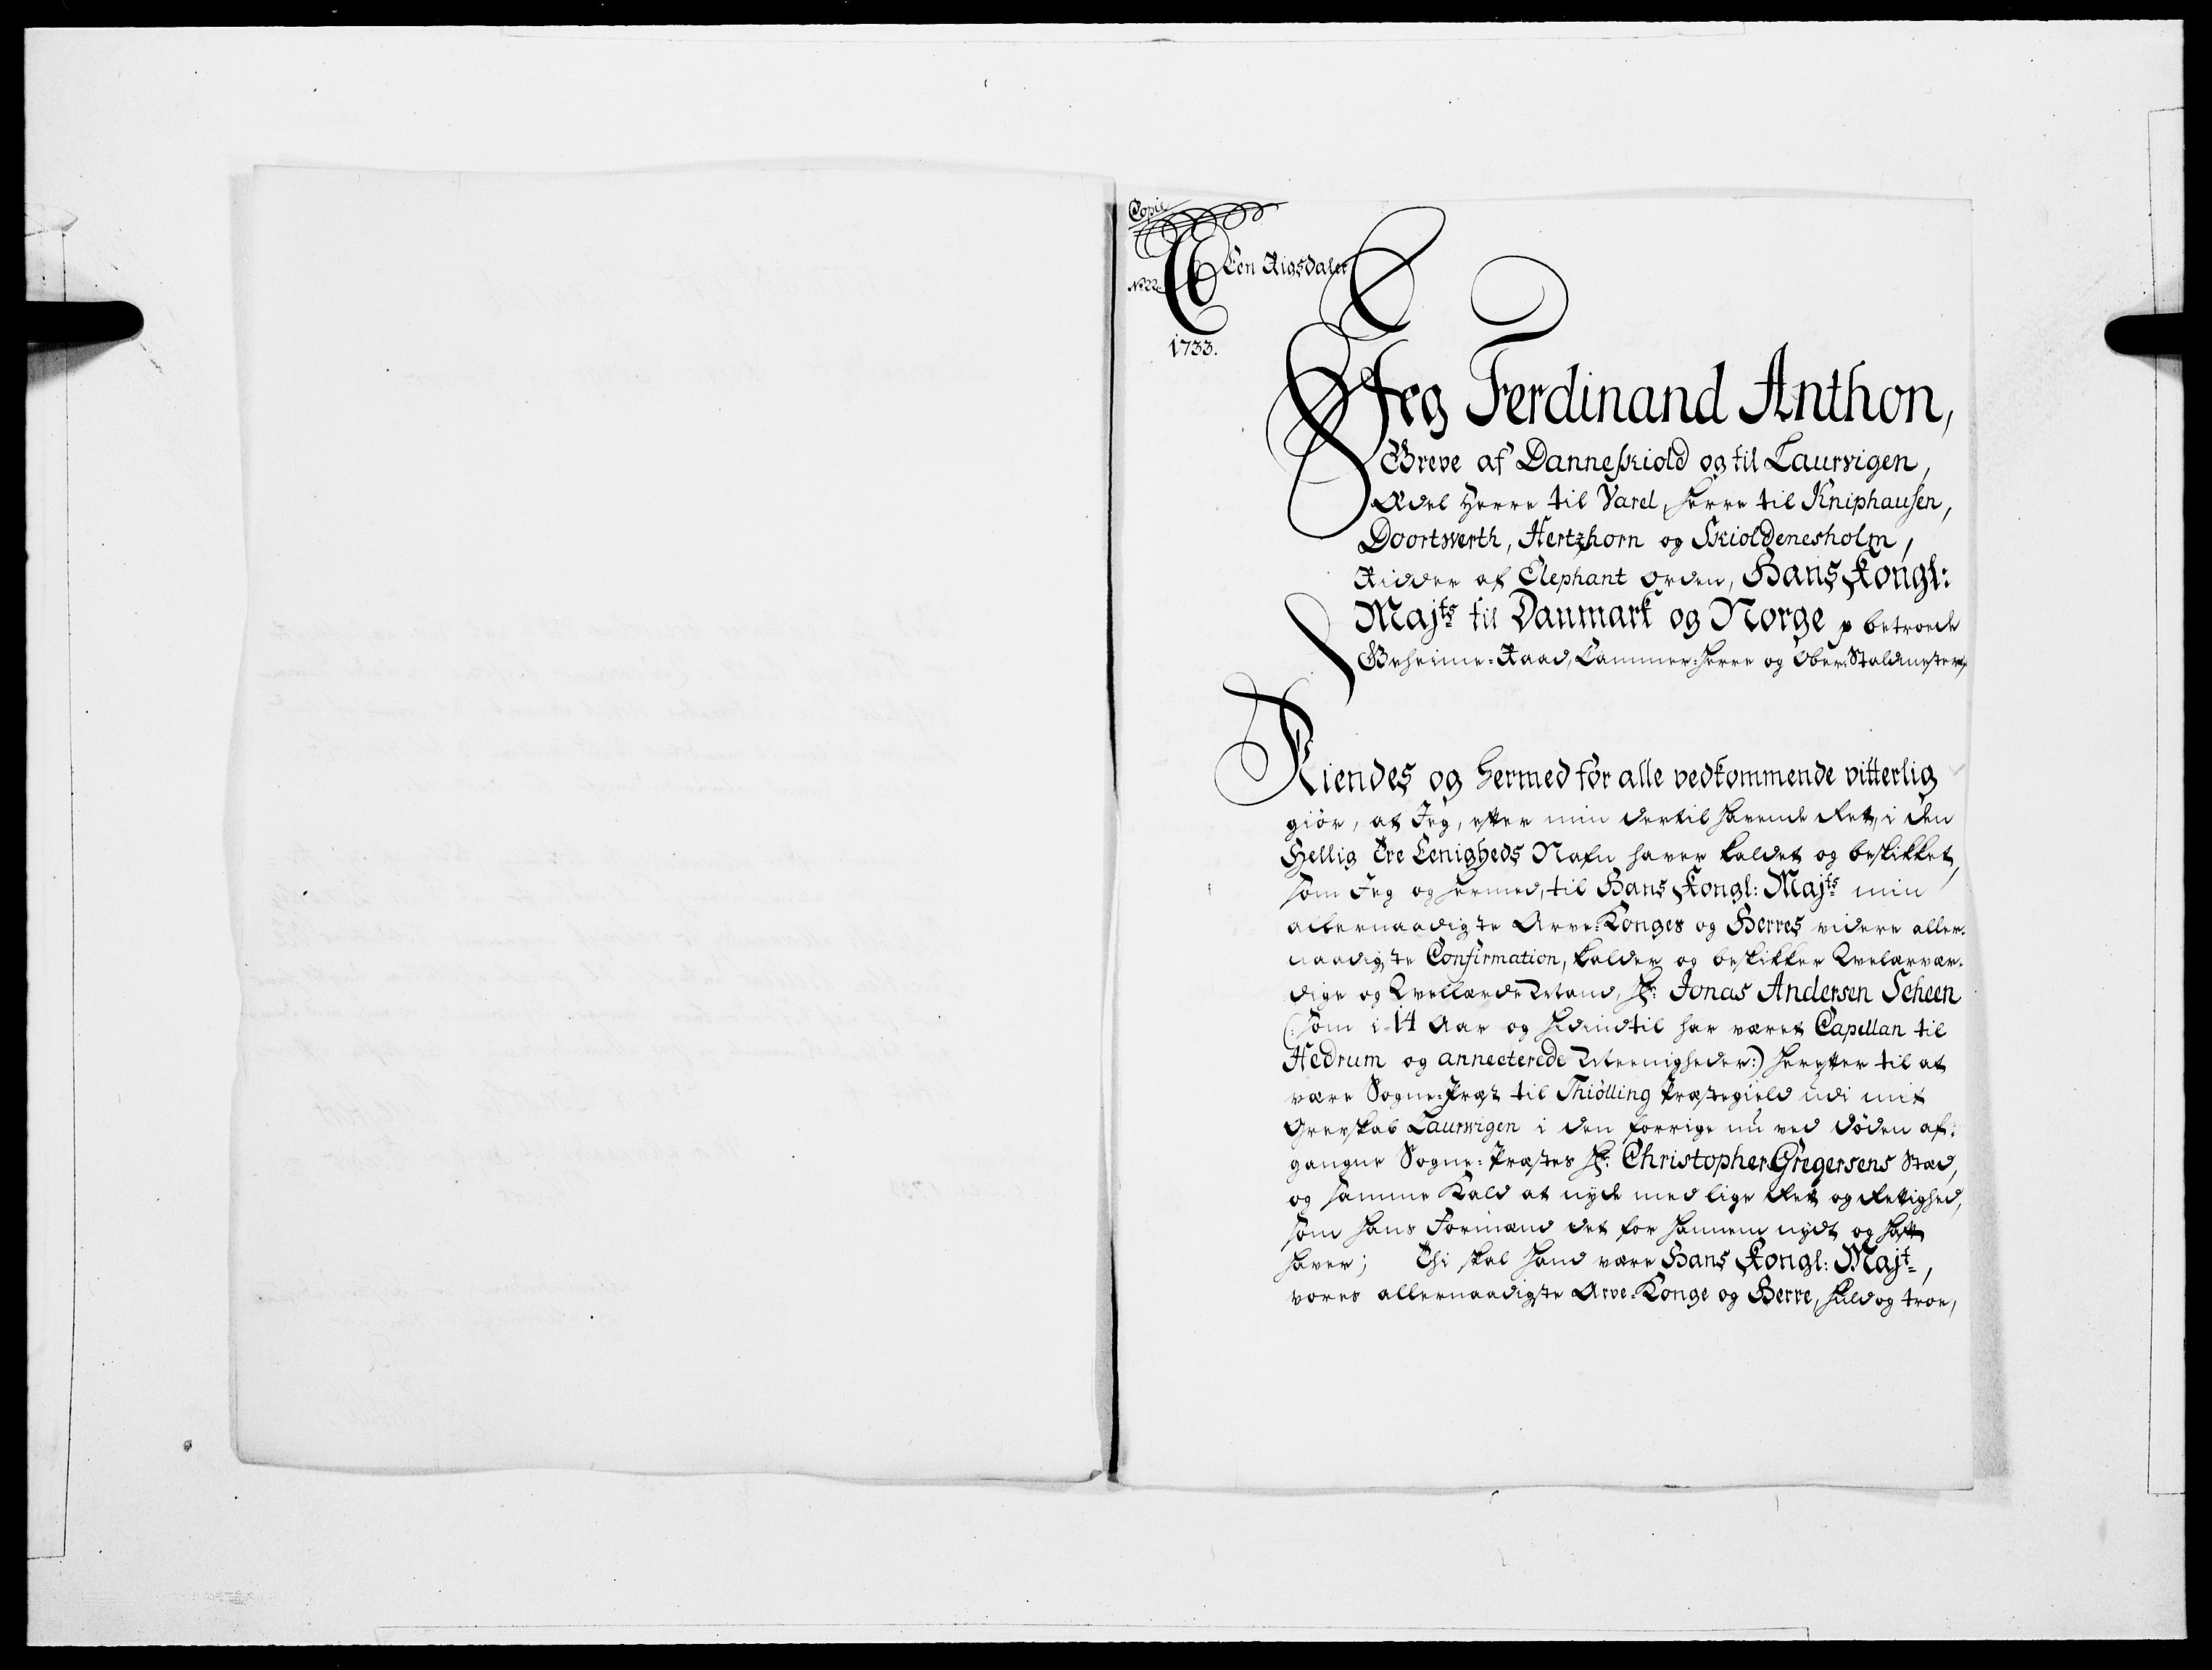 Copie
Een Rigsdaler
No 22.
1733.
Jeg Ferdinand Anthon,
Greve af Danneskiold og til Laurvigen,
Ædel Herre til Varel, Herre til Kniphausen,
Doortwerth, Hertzhorn og Skioldenesholm,
Ridder af Elephant Orden, Hans Kongl:
Majts til Danmark og Norge p betroede
Geheime-Raad, Cammer-Herre og Ober-Staldmester
Kiendes og hermed for alle vedkommende vitterlig
giör, at Jeg, efter min dertil havende Ret, i den
Hellig Tre Eenigheds Nafn haver kaldet og beskikket,
som Jeg og hermed, til Hans Kongl: Majts min
allernaadigste Arve-Konges og Herres videre aller-
naadigste Confirmation, kalder og beskikker Velærvær-
dige og Vellærde Mand, Hr: Jonas Andersen Scheen
(: som i 14 Aar og hidindtil har været Capellan til
Hedrum og annecterede Meenigheder:) herefter til at
være Sogne-Præst til Thiölling Præstegield udi mit
Grevskab Laurwigen i den forrige nu ved döden af-
gangne Sogne-Præstes Hr: Christopher Gregersens Stæd,
og samme Kald at nyde med lige Ret og Rettighed,
som hans Formænd det for hannem nydt og haft
haver; Thi skal hand være Hans Kongl: Majt,
vores allernaadigste Arve-Konge og Herre, huld og troe,